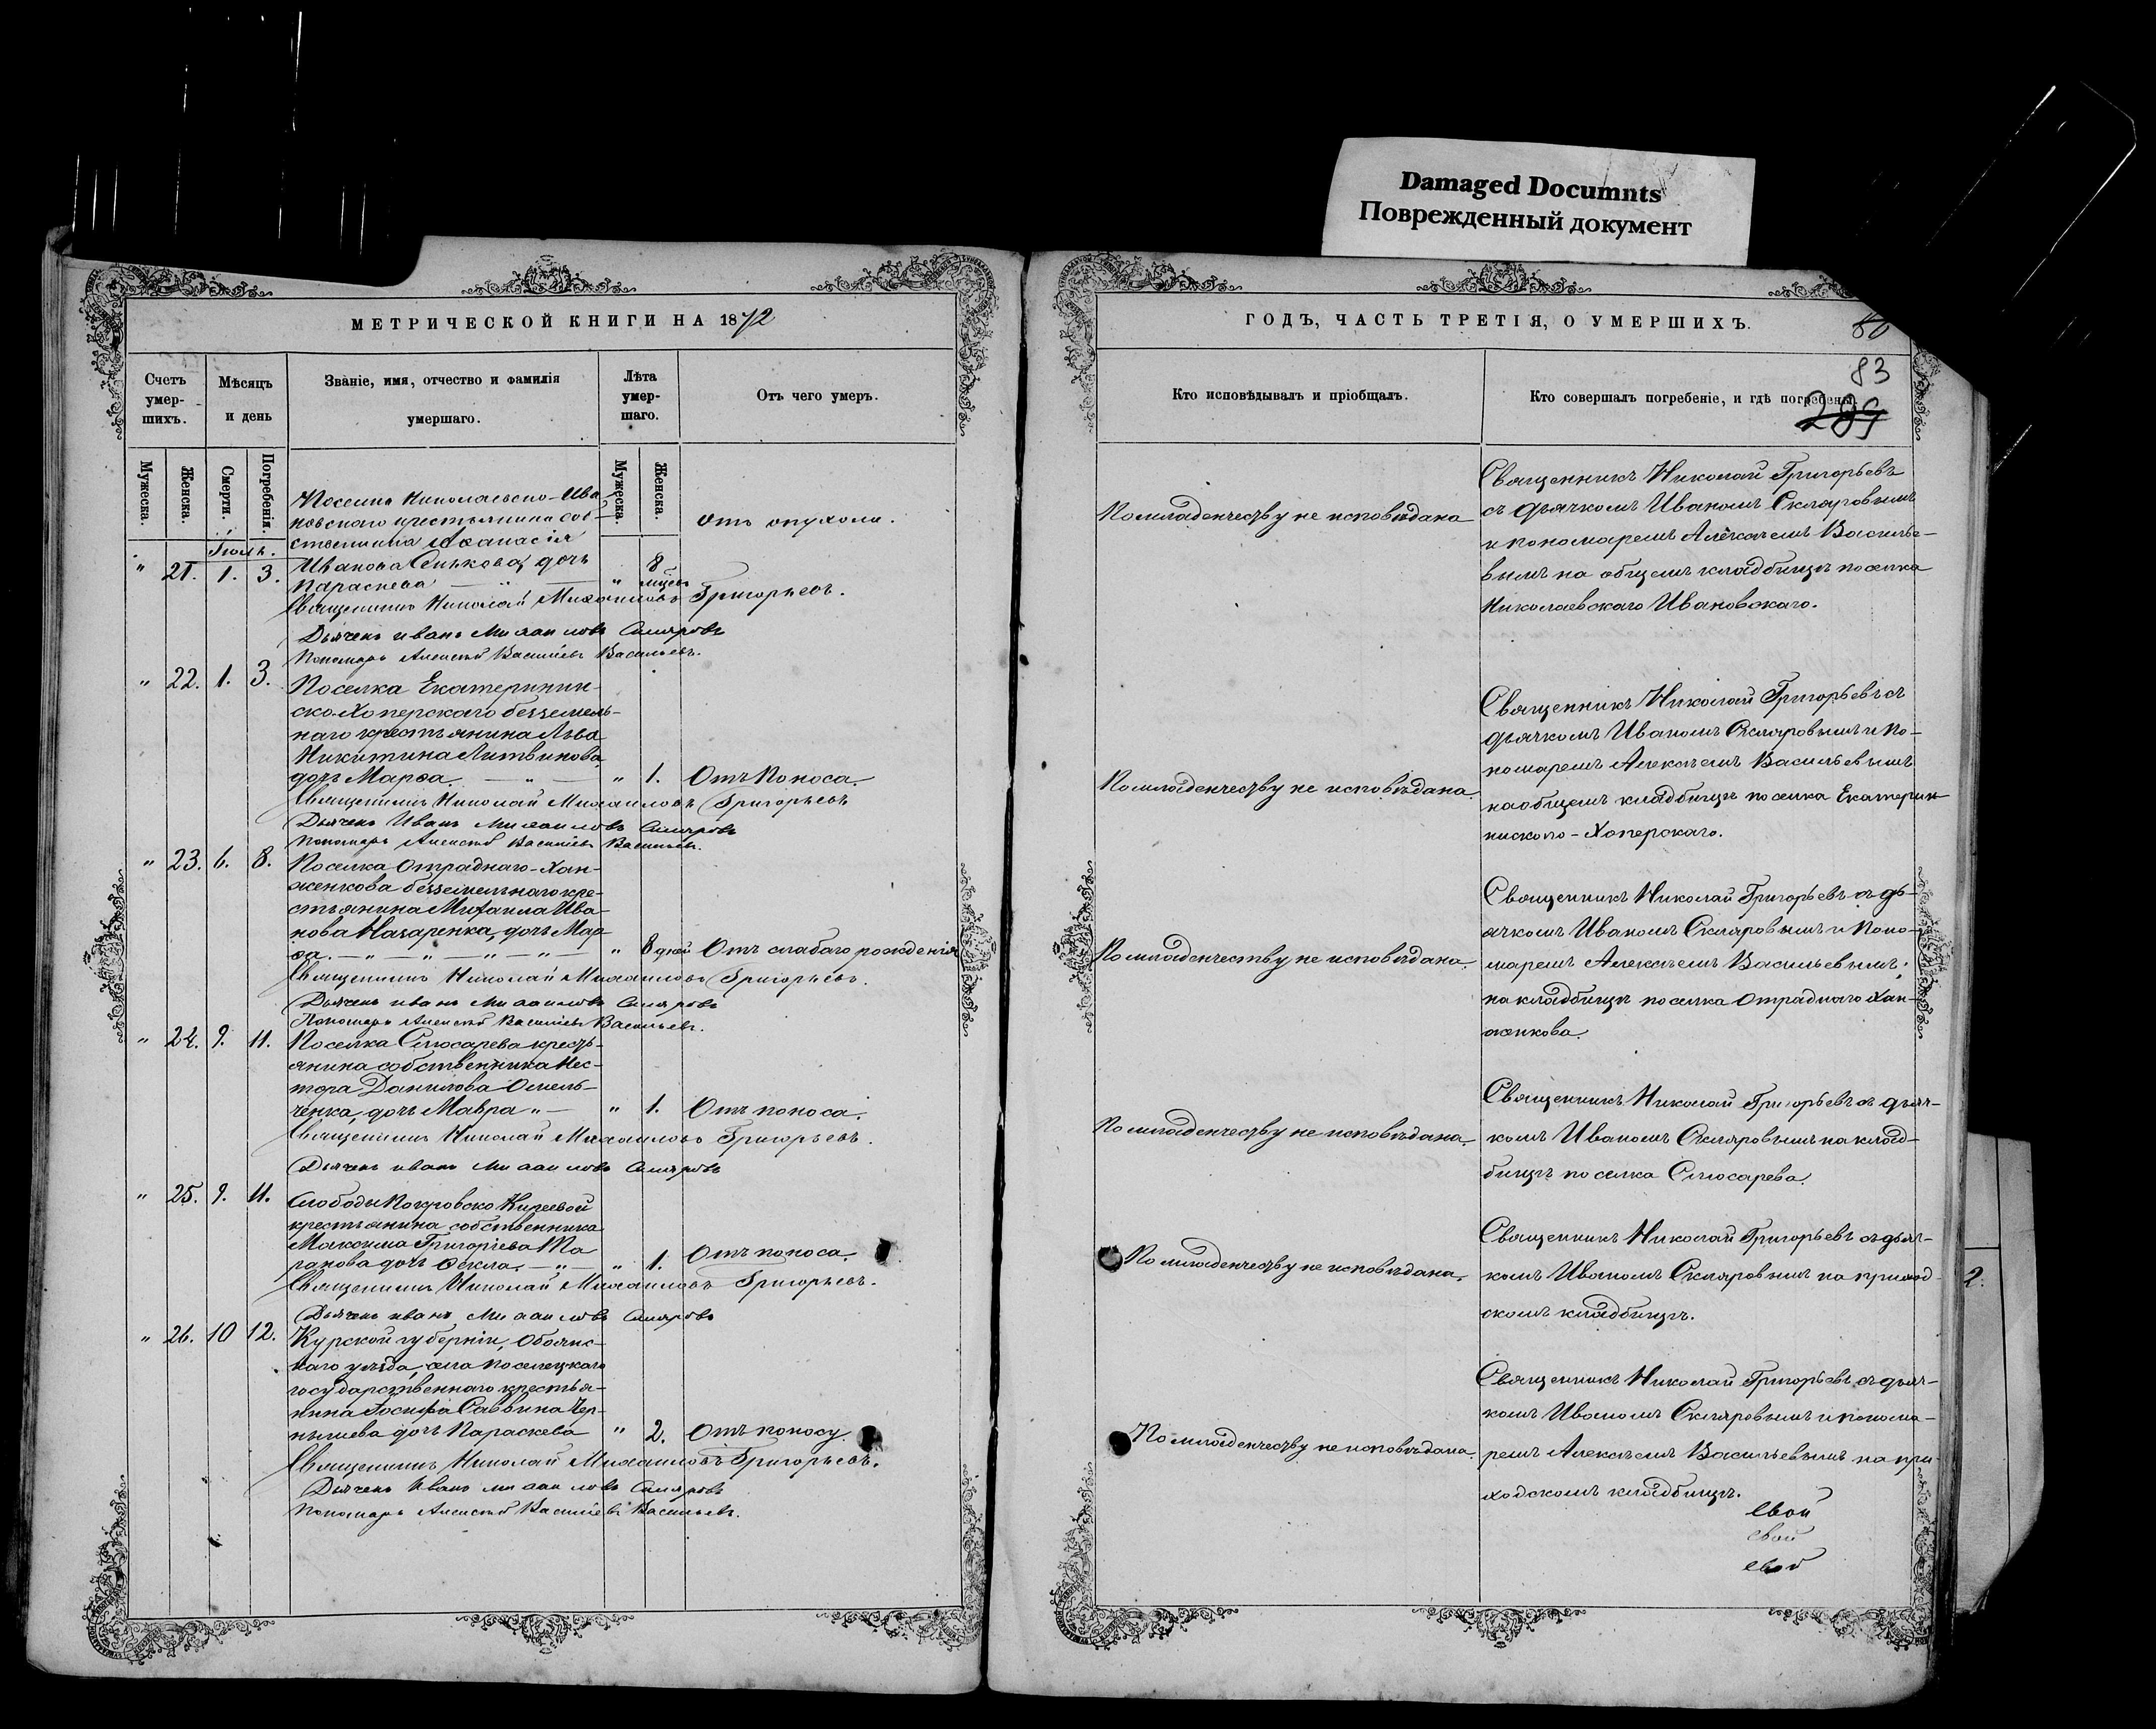 Damaged Documnts
Поврежденный документ
МЕТРИЧЕСКОЙ КНИГИ НА 1872
Счетъ умер-шихъ.
Мѣсяцъ и день
Званіе, имя, отчество и фамилія умершаго.
Лѣта умер-шаго.
Отъ чего умеръ.
Мужеска.
Женска.
Смерти.
Погребенія.
Мужеска.
Женска.
Іюль.
Поселка Николаевско-Ива-
новскаго крестьянина соб-
ственника Аѳанасія
" 21. 1. 3. Иванова Сенькова, дочь
Параскева " 8 мцевъ отъ опухоли.
Священникъ Николай Михаиловъ Григорьевъ.
Дьячекъ Иванъ Михаиловъ Скляровъ
Пономарь Алексѣй Василіевъ Васильевъ.
" 22. 1. 3. Поселка Екатеринин-
ско-Хоперскаго безземель-
наго крестьянина Льва
Никитина Литвинова,
дочь Марѳа. — " — " 1. Отъ поноса.
Священникъ Николай Михаиловъ Григорьевъ
Дьячекъ Иванъ Михаиловъ Скляровъ
Пономарь Алексѣй Василіевъ Васильевъ.
" 23. 6. 8. Поселка Отраднаго-Хан-
женкова безземельнаго кре-
стьянина Михаила Ива-
нова Назаренка, дочь Мар-
ѳа. — " — " — " — " — " 8 дней Отъ слабаго рожденія
Священникъ Николай Михаиловъ Григорьевъ.
Дьячекъ Иванъ Михаиловъ Скляровъ
Пономарь Алексѣй Василіевъ Васильевъ.
" 24. 9. 11. Поселка Слюсарева кресть-
янина собственника Нес-
тора Данилова Омель-
ченка, дочь Мавра " — " 1. Отъ поноса.
Священникъ Николай Михаиловъ Григорьевъ.
Дьячекъ Иванъ Михаиловъ Скляровъ
" 25. 9. 11. Слободы Покровско Киреевой
крестьянина собственника
Максима Григоріева Та
ранова дочь Ѳекла. — " — " 1. Отъ поноса.
Священникъ Николай Михаиловъ Григорьевъ.
Дьячекъ Иванъ Михаиловъ Скляровъ
" 26. 10 12. Курской губерніи, Обоянс-
каго уѣзда, села Поселецкаго
государственнаго крестья-
нина Іосифа Саввина Чер-
нышева дочь Параскева " 2. Отъ поносу.
Священникъ Николай Михаиловъ Григорьевъ.
Дьячекъ Иванъ Михаиловъ Скляровъ
Пономарь Алексѣй Василіевъ Васильевъ.
ГОДЪ, ЧАСТЬ ТРЕТІЯ, О УМЕРШИХЪ.
80
83
289
Кто исповѣдывалъ и пріобщалъ.
Кто совершалъ погребеніе, и гдѣ погребены.
По младенчеству не исповѣдана
Священникъ Николай Григорьевъ
съ дьячкомъ Иваномъ Скляровымъ
и пономаремъ Алексѣемъ Василье-
вымъ на общемъ кладбищѣ поселка
Николаевскаго Ивановскаго.
По младенчеству не исповѣдана.
Священникъ Николай Григорьевъ съ
дьячкомъ Иваномъ Скляровымъ и по-
номаремъ Алексѣемъ Васильевымъ
на общемъ кладбищѣ поселка Екатерин-
нинского-Хоперскаго.
По младенчеству не исповѣдана.
Священникъ Николай Григорьевъ съ дь-
ячкомъ Иваномъ Скляровымъ и поно-
маремъ Алексѣемъ Васильевымъ;
на кладбищѣ поселка Отраднаго Хан-
женкова.
По младенчеству не исповѣдана.
Священникъ Николай Григорьевъ съ дьяч-
комъ Иваномъ Скляровымъ на клад-
бищѣ поселка Слюсарева.
По младенчеству не исповѣдана.
Священникъ Николай Григорьевъ съ дьяч-
комъ Иваномъ Скляровымъ на приход-
скомъ кладбищѣ.
По младенчеству не исповѣдана.
Священникъ Николай Григорьевъ съ дьяч-
комъ Иваномъ Скляровымъ и понома-
ремъ Алексѣемъ Васильевымъ на при-
ходскомъ кладбищѣ.
свой
свой
свой
2.